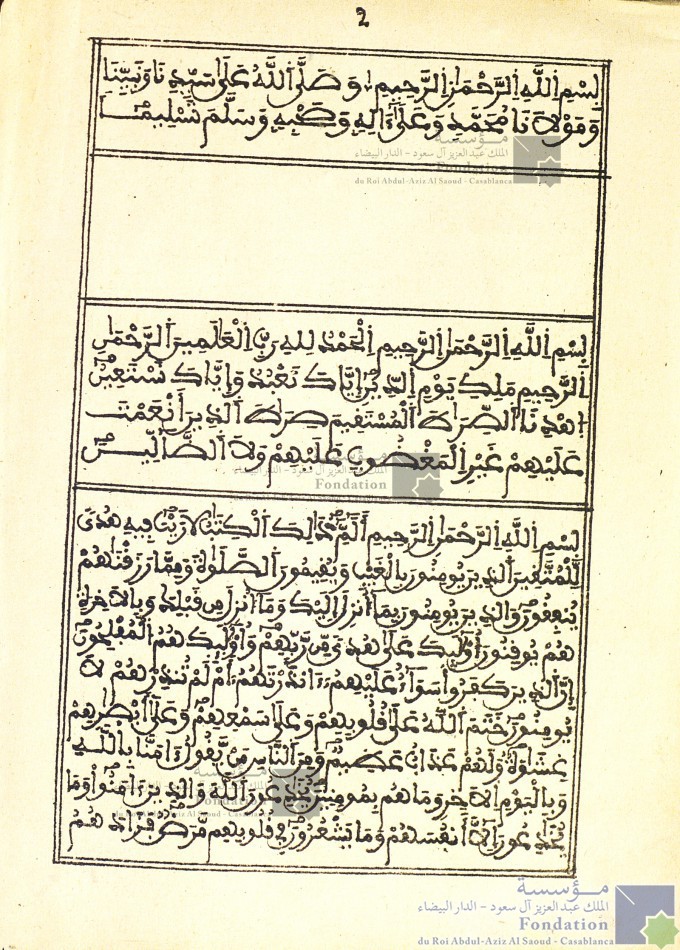 2
بِسْمِ اِللَّهِ اِلرَّحْمَٰنِ اِلرَّحِيمِ وَصَلَّى اَللَّهُ عَلَىٰ سَيِّدِنَا وَنَبِيِّنَا
وَمَوْلَانَا مُحَمَّدٍ وَعَلَىٰ ءَالِهِ وَصَحْبِهِ وَسَلَّمَ تَسْلِيماً
مؤسسة
الملك عبد العزيز آل سعود - الدار البيضاء
Fondation
du Roi Abdul-Aziz Al Saoud - Casablanca
بِسْمِ اِللَّهِ اِلرَّحْمَٰنِ اِلرَّحِيمِ اِلْحَمْدُ لِلهِ رَبِّ اِلْعَالَمِينَ اَلرَّحْمَٰنِ
اِلرَّحِيمِ مَلِكِ يَوْمِ اِلدِّينِ إِيَّاكَ نَعْبُدُ وَإِيَّاكَ نَسْتَعِينُ
اِهْدِنَا اَلصِّرَاطَ اَلْمُسْتَقِيمَ صِرَاطَ اَلذِينَ أَنْعَمْتَ
عَلَيْهِمْ غَيْرِ اِلْمَغْضُوبِ عَلَيْهِمْ وَلَا اَلضَّالِّينَ
مؤسسة
الملك عبد العزيز آل سعود - الدار البيضاء
Fondation
بِسْمِ اِللَّهِ اِلرَّحْمَٰنِ اِلرَّحِيمِ أَلَمِّ ذَٰلِكَ اَلْكِتَٰبُ لَا رَيْبَ فِيهِ هُدىً
لِّلْمُتَّقِينَ اَلذِينَ يُومِنُونَ بِالْغَيْبِ وَيُقِيمُونَ اَلصَّلَوٰةَ وَمِمَّا رَزَقْنَاهُمْ
يُنفِقُونَ وَالذِينَ يُومِنُونَ بِمَا أُنزِلَ إِلَيْكَ وَمَا أُنزِلَ مِن قَبْلِكَ وَبِالَاخِرَةِ
هُمْ يُوقِنُونَ أُوْلَٰئِكَ عَلَىٰ هُدىً مِّن رَّبِّهِمْ وَأُوْلَٰئِكَ هُمُ اَلْمُفْلِحُونَ
إِنَّ اَلذِينَ كَفَرُواْ سَوَآءٌ عَلَيْهِمُ ءَآنذَرْتَهُمُ أَمْ لَمْ تُنذِرْهُمْ لَا
يُومِنُونَ خَتَمَ اَللَّهُ عَلَىٰ قُلُوبِهِمْ وَعَلَىٰ سَمْعِهِمْ وَعَلَىٰ أَبْصَٰرِهِمْ
غِشَٰوَةٌ وَلَهُمْ عَذَابٌ عَظِيمٌ وَمِنَ اَلنَّاسِ مَنْ يَّقُولُ ءَامَنَّا بِاللَّهِ
وَبِالْيَوْمِ اِلَاخِرِ وَمَا هُم بِمُومِنِينَ يُخَٰدِعُونَ اَللَّهَ وَالذِينَ ءَامَنُواْ وَمَا
يُخَٰدِعُونَ إِلَّا أَنفُسَهُمْ وَمَا يَشْعُرُونَ فِي قُلُوبِهِم مَّرَضٌ فَزَادَهُمُ
مؤسسة
الملك عبد العزيز آل سعود - الدار البيضاء
Fondation
du Roi Abdul-Aziz Al Saoud - Casablanca
مؤسسة
الملك عبد العزيز آل سعود - الدار البيضاء
Fondation
du Roi Abdul-Aziz Al Saoud - Casablanca